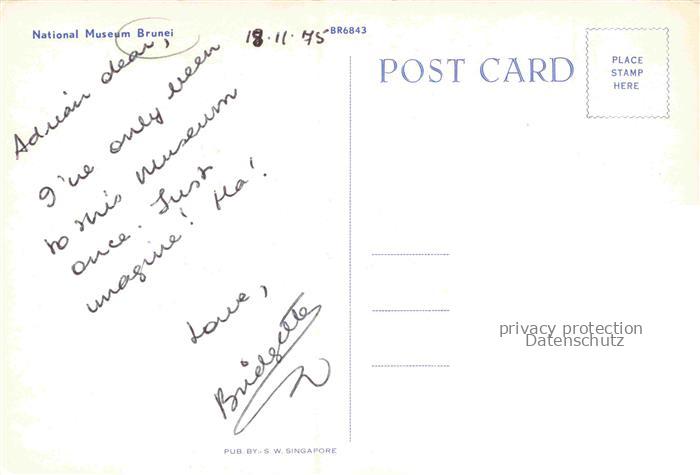 National Museum Brunei
18·11·75
BR6843
Adrian dear,
I've only been
to this museum
once. Just
imagine! Ha!
Love,
Bridgette
POST CARD
PLACE
STAMP
HERE
privacy protection
Datenschutz
PUB. BY:- S. W. SINGAPORE